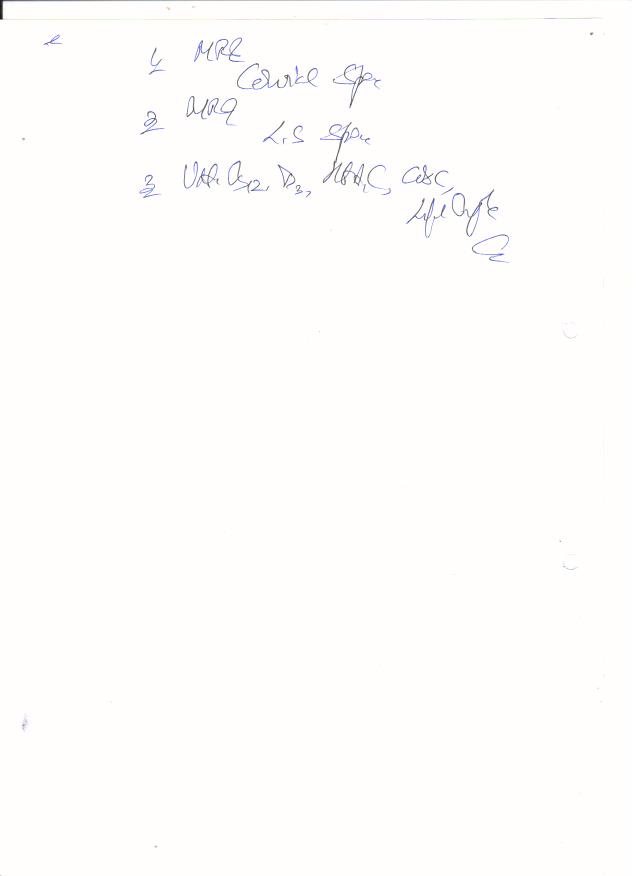 1 MRI
Cervical Spine
2 MRI
L.S Spine
3 Vit. B12, D3, HbA1C, CBC,
Lipid Profile